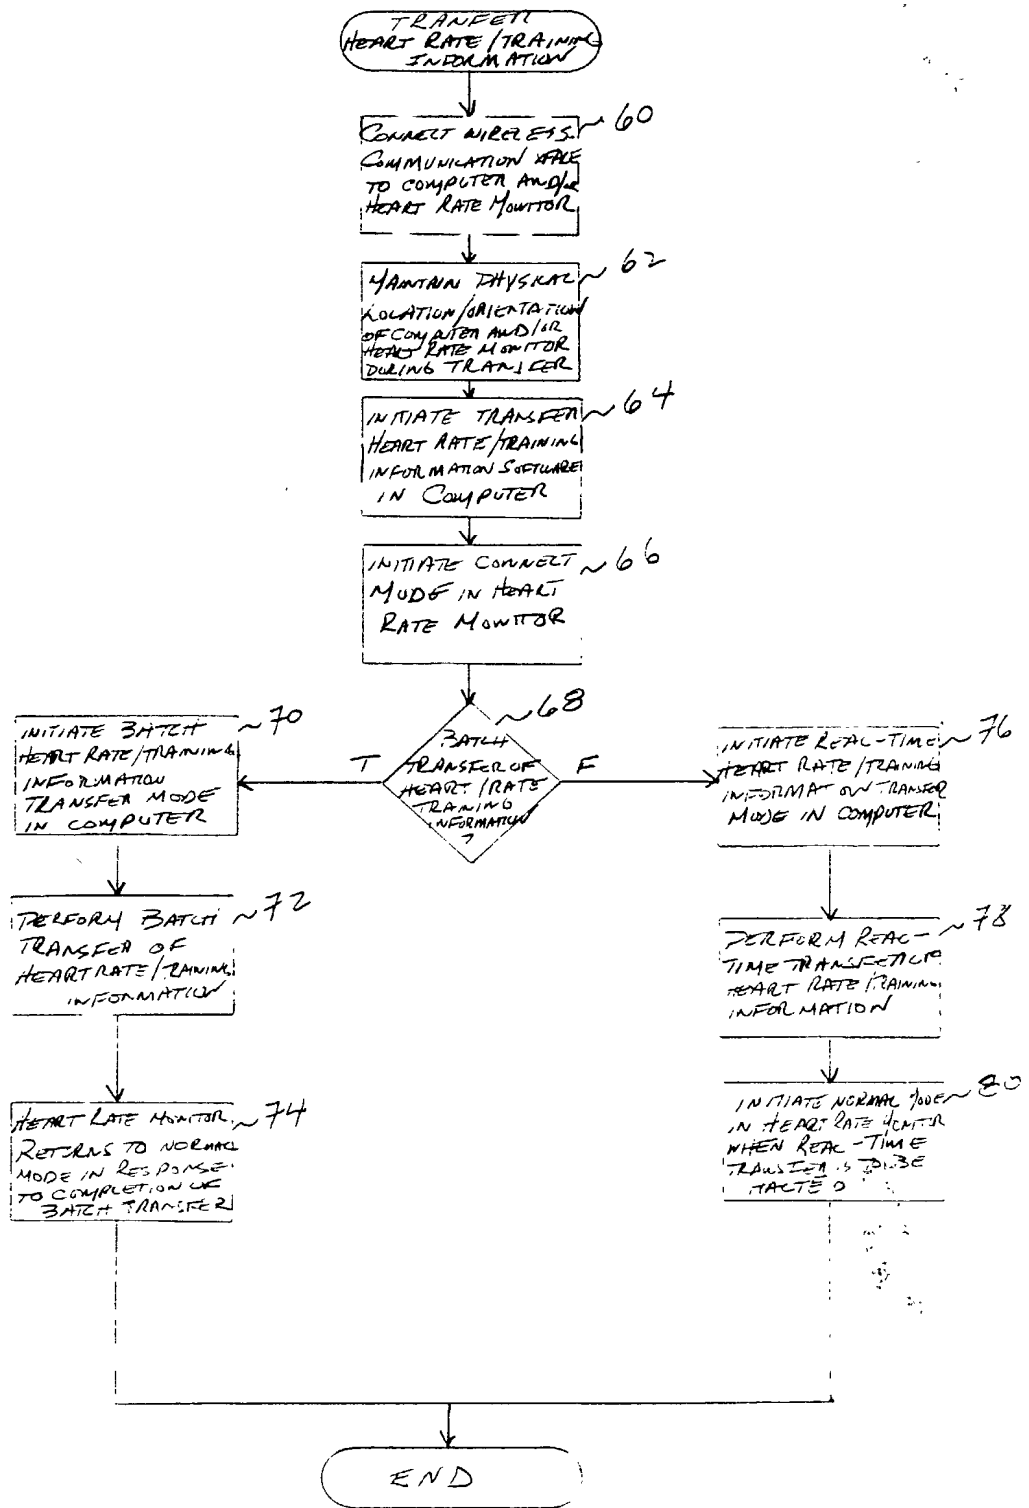 TRANFER
HEART RATE/TRAINING
INFORMATION
CONNECT WIRELESS
COMMUNICATION
TO COMPUTER AND/OR
HEART RATE MONITOR
60
MAINTAIN PHYSICAL
LOCATION/ORIENTATION
OF COMPUTER AND/OR
HEART RATE MONITOR
DURING TRANSFER
62
INITIATE TRANSFER
HEART RATE/TRAINING
INFORMATION SOFTWARE
IN COMPUTER
64
INITIATE CONNECT
MODE IN HEART
RATE MONITOR
66
68
BATCH
TRANSFER OF
HEART/RATE
TRAINING
INFORMATION
?
T
F
INITIATE BATCH
HEART RATE/TRAINING
INFORMATION
TRANSFER MODE
IN COMPUTER
70
PERFORM BATCH
TRANSFER OF
HEART RATE/TRAINING
INFORMATION
72
HEART RATE MONITOR
RETURNS TO NORMAL
MODE IN RESPONSE
TO COMPLETION OF
BATCH TRANSFER
74
INITIATE REAL-TIME
HEART RATE/TRAINING
INFORMATION TRANSFER
MODE IN COMPUTER
76
PERFORM REAL-
TIME TRANSFER OF
HEART RATE/TRAINING
INFORMATION
78
INITIATE NORMAL MODE
IN HEART RATE MONITOR
WHEN REAL-TIME
TRANSFER IS TO BE
HALTED
80
END